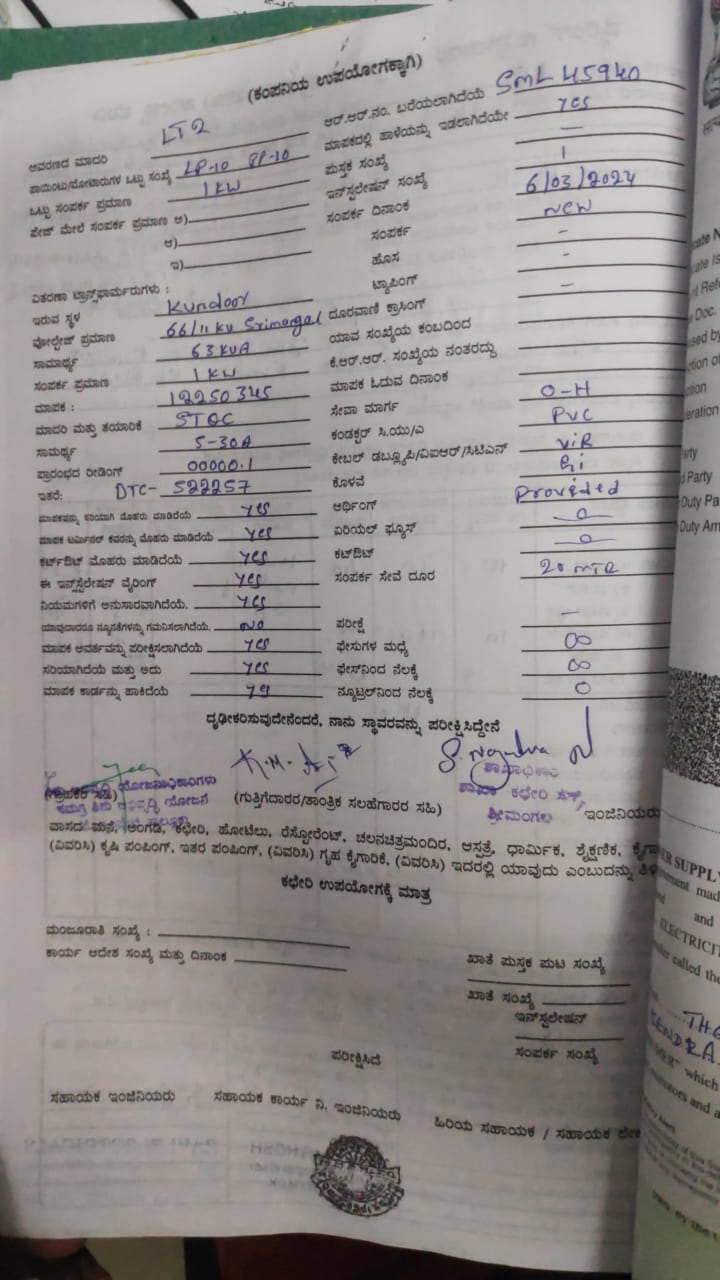 (ಕಂಪನಿಯ ಉಪಯೋಗಕ್ಕಾಗಿ)
ಆವರಣದ ಮಾದರಿ LT2
ಪಾಯಿಂಟು/ಮೋಟಾರುಗಳ ಒಟ್ಟು ಸಂಖ್ಯೆ LP-10 PP-10
ಒಟ್ಟು ಸಂಪರ್ಕ ಪ್ರಮಾಣ 1 KW
ಪೇಜ್ ಮೇಲೆ ಸಂಪರ್ಕ ಪ್ರಮಾಣ ಅ)
ಆ)
ಇ)
ವಿತರಣಾ ಟ್ರಾನ್ಸ್‌ಫಾರ್ಮರುಗಳು :
ಇರುವ ಸ್ಥಳ Kundoor
ವೋಲ್ಟೇಜ್ ಪ್ರಮಾಣ 66/11 KV Srimangal
ಸಾಮರ್ಥ್ಯ 63 KVA
ಸಂಪರ್ಕ ಪ್ರಮಾಣ 1 KW
ಮಾಪಕ : 12250345
ಮಾದರಿ ಮತ್ತು ತಯಾರಿಕೆ
ಸಾಮರ್ಥ್ಯ 5-30A
ಪ್ರಾರಂಭದ ರೀಡಿಂಗ್ 00000.1
ಇತರೆ: DTC- 522257
ಮಾಪಕವನ್ನು ಸರಿಯಾಗಿ ಮೊಹರು ಮಾಡಿದೆಯೆ Yes
ಮಾಪಕ ಟರ್ಮಿನಲ್ ಕವರನ್ನು ಮೊಹರು ಮಾಡಿದೆಯೆ Yes
ಕಟ್‌ಔಟ್ ಮೊಹರು ಮಾಡಿದೆಯೆ Yes
ಈ ಇನ್‌ಸ್ಟಲೇಷನ್ ವೈರಿಂಗ್ Yes
ನಿಯಮಗಳಿಗೆ ಅನುಸಾರವಾಗಿದೆಯೆ. Yes
ಯಾವುದಾದರೂ ನ್ಯೂನತೆಗಳನ್ನು ಗಮನಿಸಲಾಗಿದೆಯೆ. NO
ಮಾಪಕ ಆವರ್ತವನ್ನು ಪರೀಕ್ಷಿಸಲಾಗಿದೆಯೆ Yes
ಸರಿಯಾಗಿದೆಯೆ ಮತ್ತು ಅದು Yes
ಮಾಪಕ ಕಾರ್ಡನ್ನು ಹಾಕಿದೆಯೆ
ಆರ್.ಆರ್.ನಂ. ಬರೆಯಲಾಗಿದೆಯೆ SML 45940
ಮಾಪಕದಲ್ಲಿ ಹಾಳೆಯನ್ನು ಇಡಲಾಗಿದೆಯೇ Yes
ಪುಸ್ತಕ ಸಂಖ್ಯೆ —
ಇನ್‌ಸ್ಟಲೇಷನ್ ಸಂಖ್ಯೆ 1
ಸಂಪರ್ಕ ದಿನಾಂಕ 6/03/2024
ಸಂಪರ್ಕ New
ಹೊಸ -
ಟ್ಯಾಪಿಂಗ್ -
ದೂರವಾಣಿ ಕ್ರಾಸಿಂಗ್ —
ಯಾವ ಸಂಖ್ಯೆಯ ಕಂಬದಿಂದ
ಕೆ.ಆರ್.ಆರ್. ಸಂಖ್ಯೆಯ ನಂತರದ್ದು
ಮಾಪಕ ಓದುವ ದಿನಾಂಕ
ಸೇವಾ ಮಾರ್ಗ O-H
ಕಂಡಕ್ಟರ್ ಸಿ.ಯು/ಎ PVC
ಕೇಬಲ್ ಡಬ್ಲ್ಯೂಪಿ/ವಿಐಆರ್/ಸಿಟಿಎನ್ ViR
ಕೊಳವೆ Gi
ಆರ್ಥಿಂಗ್ Provided
ಏರಿಯಲ್ ಫ್ಯೂಸ್ —0—
ಕಟ್‌ಔಟ್ —0—
ಸಂಪರ್ಕ ಸೇವೆ ದೂರ 20 MTR
ಪರೀಕ್ಷೆ —
ಫೇಸುಗಳ ಮಧ್ಯೆ ∞
ಫೇಸ್‌ನಿಂದ ನೆಲಕ್ಕೆ ∞
ನ್ಯೂಟ್ರಲ್‌ನಿಂದ ನೆಲಕ್ಕೆ 0
ದೃಢೀಕರಿಸುವುದೇನೆಂದರೆ, ನಾನು ಸ್ಥಾವರವನ್ನು ಪರೀಕ್ಷಿಸಿದ್ದೇನೆ
(ಗ್ರಾಹಕರ ಸಹಿ) (ಗುತ್ತಿಗೆದಾರರ/ತಾಂತ್ರಿಕ ಸಲಹೆಗಾರರ ಸಹಿ) ಶ್ರೀಮಂಗಲ ಇಂಜಿನಿಯರು
ವಾಸದ ಮನೆ, ಅಂಗಡಿ, ಕಛೇರಿ, ಹೋಟೆಲು, ರೆಸ್ಟೋರೆಂಟ್, ಚಲನಚಿತ್ರಮಂದಿರ, ಆಸ್ಪತ್ರೆ, ಧಾರ್ಮಿಕ, ಶೈಕ್ಷಣಿಕ,
(ವಿವರಿಸಿ) ಕೃಷಿ ಪಂಪಿಂಗ್, ಇತರ ಪಂಪಿಂಗ್, (ವಿವರಿಸಿ) ಗೃಹ ಕೈಗಾರಿಕೆ, (ವಿವರಿಸಿ) ಇದರಲ್ಲಿ ಯಾವುದು ಎಂಬುದನ್ನು
ಕಛೇರಿ ಉಪಯೋಗಕ್ಕೆ ಮಾತ್ರ
ಮಂಜೂರಾತಿ ಸಂಖ್ಯೆ :
ಕಾರ್ಯ ಆದೇಶ ಸಂಖ್ಯೆ ಮತ್ತು ದಿನಾಂಕ
ಖಾತೆ ಪುಸ್ತಕ ಪುಟ ಸಂಖ್ಯೆ
ಖಾತೆ ಸಂಖ್ಯೆ
ಇನ್‌ಸ್ಟಲೇಷನ್
ಸಂಪರ್ಕ ಸಂಖ್ಯೆ
ಪರೀಕ್ಷಿಸಿದೆ
ಸಹಾಯಕ ಇಂಜಿನಿಯರು ಸಹಾಯಕ ಕಾರ್ಯ ನಿ. ಇಂಜಿನಿಯರು ಹಿರಿಯ ಸಹಾಯಕ / ಸಹಾಯಕ